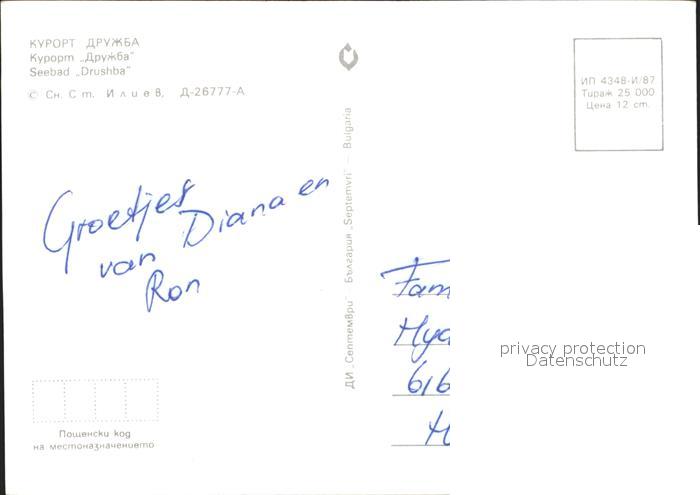 КУРОРТ ДРУЖБА
Курорт „Дружба"
Seebad „Drushba"
© Сн. Ст. Илиев, Д-26777-А
ИП 4348-И/87
Тираж 25 000
Цена 12 ст.
ДИ „Септември" България „Septemvri" – Bulgaria
Groetjes
van Diana en
Ron
Fam
616
H
privacy protection
Datenschutz
Пощенски код
на местоназначението